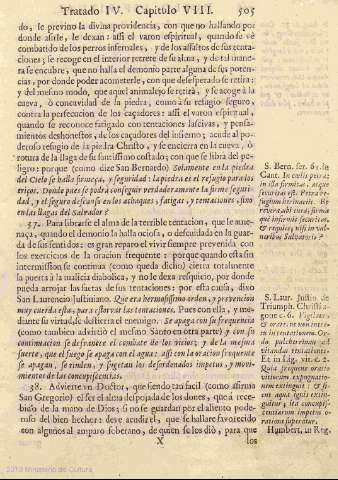 Tratado IV. Capitulo VIII. 505
do, le previno la divina providencia, con que no hallando por
donde asirle, le dexan: assi el varon espiritual, quando se vè
combatido de los perros infernales, y de los assaltos de sus tenta-
ciones; se recoge en el interior retrete de su alma, y de tal mane-
ra se encubre, que no halla el demonio parte alguna de sus poten-
cias, por donde poder acometerle, con que desesperado se retira:
y del mismo modo, que aquel animalejo se retira, y se acoge à la
cueva, ò concavidad de la piedra, como à su refugio seguro,
contra la persecucion de los caçadores: assi el varon espiritual,
quando se reconoce fatigado con tentaciones lascivas, y pensa-
mientos deshonestos, de los caçadores del infierno; acude al po-
deroso refugio de la piedra Christo, y se encierra en la cueva, ò
rotura de la llaga de su santissimo costado; con que se libra del pe-
ligro: porque (como dize San Bernardo) Solamente en la piedra
del Cielo se halla firmeza, y seguridad: la piedra es el refugio para los
erizos. Donde pues se podrà conseguir verdaderamente la firme seguri-
dad, y el seguro descanso en los achaques, fatigas, y tentaciones, sino
en las llagas del Salvador?
37. Para librarse el alma de la terrible tentacion, que le ame-
naça, quando el demonio la halla ociosa, ò descuidada en la guar-
da de sus sentidos: es gran reparo el vivir siempre prevenida con
los exercicios de la oracion frequente: porque quando esta sin
intermission se continua (como queda dicho) cierra totalmente
la puerta à la malicia diabolica, y no le dexa resquicio, por donde
pueda arrojar las factas de sus tentaciones: por esta causa, dixo
San Laurencio Justiniano. Que era hermosissimo orden, y prevencion
muy cuerda esta, para estorvar las tentaciones. Pues con ella, y me-
diante su virtud, se destierra el enemigo. Se apaga con su frequencia
(como tambien advirtiò el mesmo Santo en otra parte) y con su
continuacion se desvanece el combate de los vicios; y de la mesma
suerte, que el fuego se apaga con el agua: assi con la oracion frequente
se apagan, se rinden, y sugetan los desordenados impetus, y movi-
mientos de las concupiscencias.
38. Advierte un Doctor, que siendo tan facil (como afirma
San Gregorio) el ser el alma despojada de los dones, que à rece-
bido de la mano de Dios; si no se guardan por el aliento pode-
roso del bien hechor: deve acudir el, que se hallare favorecido
con algunos al amparo soberano, de quien se los diò, para que
X los
S. Bern. ser. 61. in
Cant. In cœlis petra;
in illa firmitas, atque
securitas est. Petra re-
fugium herinacijs. Et
revera ubi tuta, firma
que infirmis securitas,
& requies, nisi in vul-
neribus Salvatoris?
S. Laur. Justin. de
Triumph. Christi a-
gone c. 6. Vigilare,
& orare in non intran-
do in tentationem. Or-
do pulcherrimus ad
vitandas tentationes.
Et in Lig. vit. c. 2.
Quia frequens oratio
vitiorum expugnatio-
nem extinguit: & si-
cut aqua ignis extin-
guitur; ita concupis-
centiarum impetus o-
ratione superatur.
Humbert. in Reg.
2012 Ministerio de Cultura